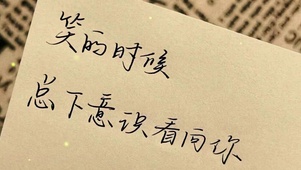 笑的时候
总下意识看向你